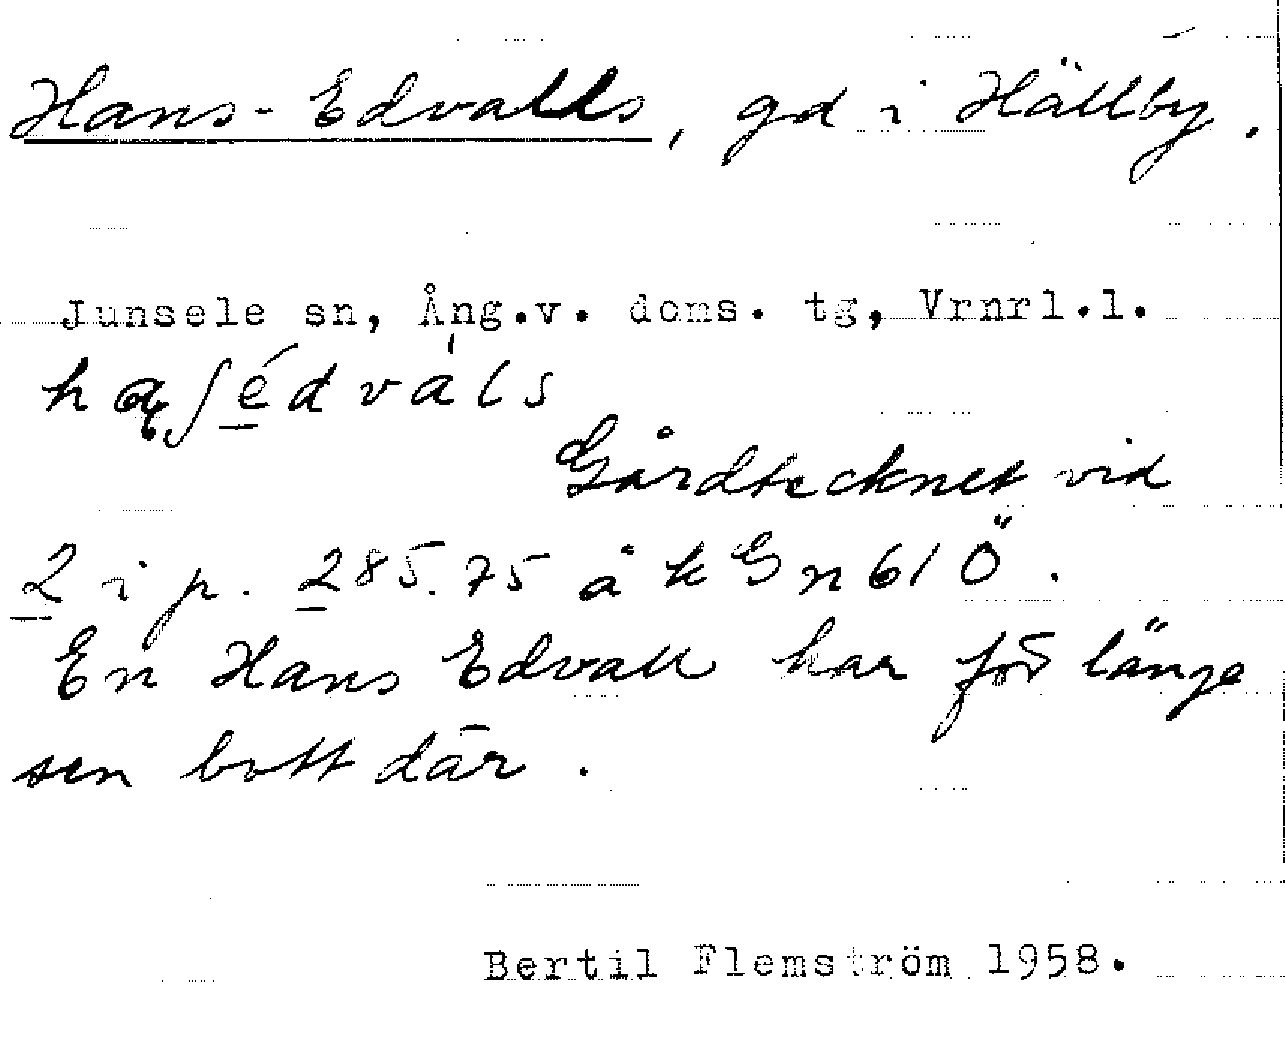 Hans-Edvalls, gd i Hällby.
Junsele sn, Ång.v. doms. tg, Vrnrl.l.
Gårdtecknet vid
2 i p. 285.75 å k G n 61 Ö.
En Hans Edvall har för länge
sen bott där.
Bertil Flemström 1958.